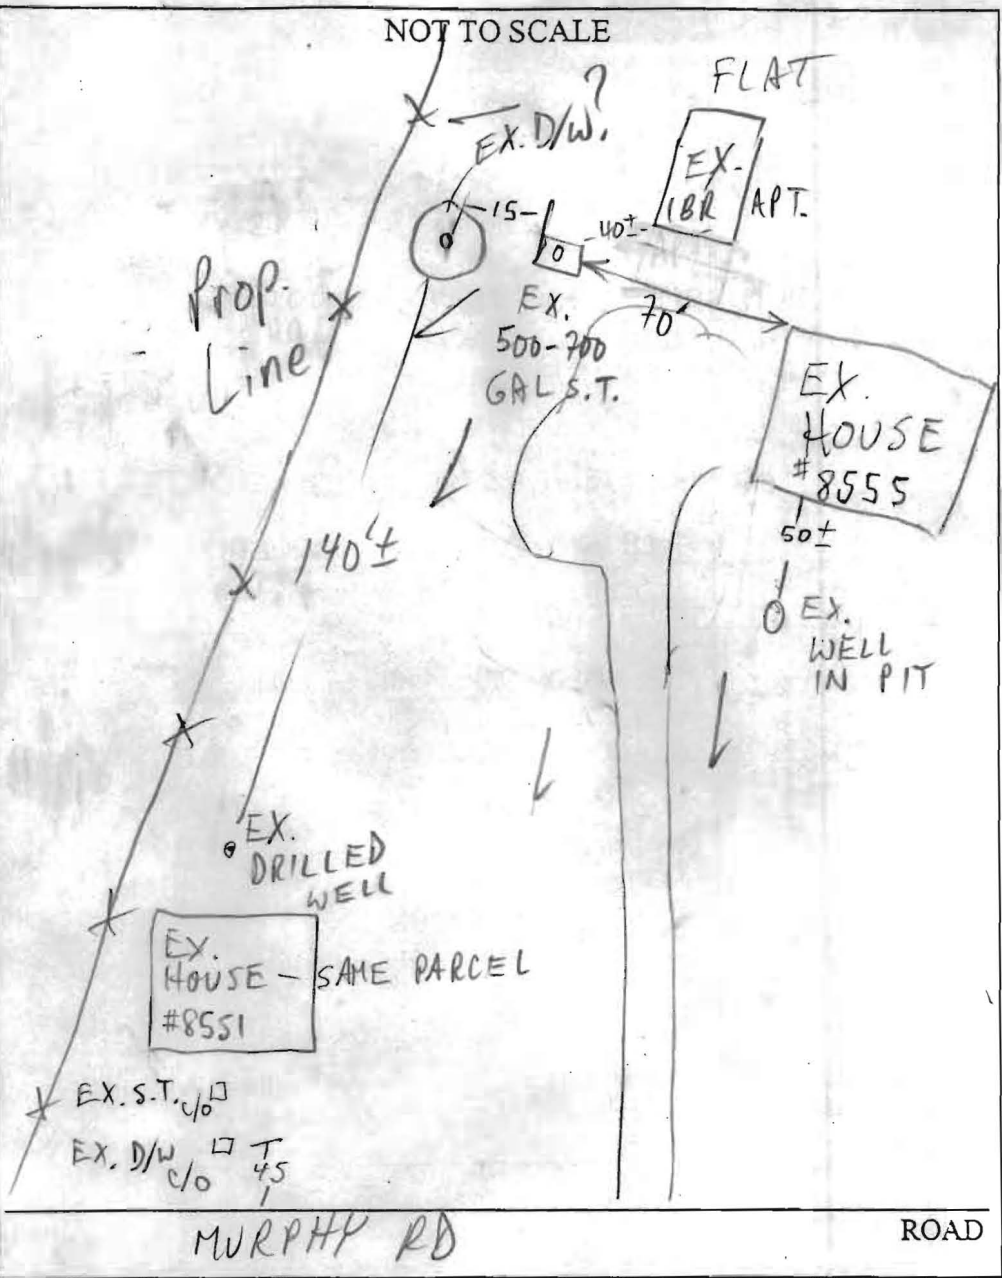 NOT TO SCALE
FLAT
?
EX. D/W.
EX.
1BR APT.
-15-
-40±-
O
O
Prop.
Line
EX.
500-700
GAL S.T.
70'
EX.
HOUSE
# 8555
50±
140'±
EX.
WELL
IN PIT
EX.
DRILLED
WELL
EX.
HOUSE - SAME PARCEL
#8551
EX. S.T. c/o
EX. D/W c/o
45
MURPHY RD
ROAD